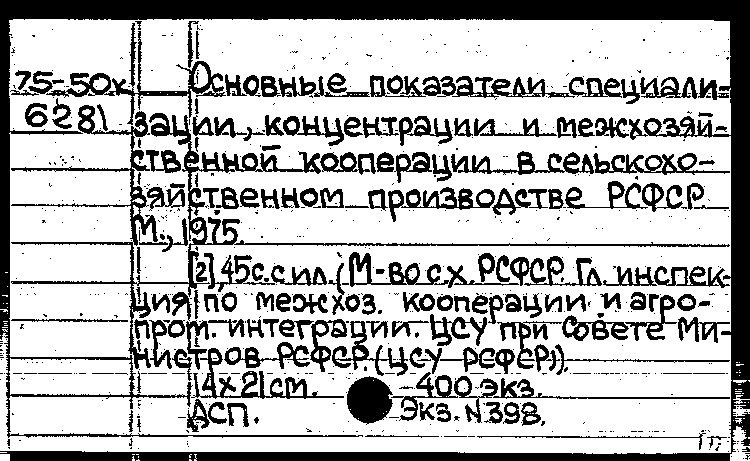 75-50х Основные показатели специали-
6281 зации, концентрации и межхозяй-
ственной кооперации в сельскохо-
зяйственном производстве РСФСР.
М., 1975.
[2],45с.с ил.(М-во с.х. РСФСР. Гл. инспек-
ция по межхоз. кооперации и агро-
пром. интеграции. ЦСУ при Совете Ми-
нистров РСФСР.(ЦСУ РСФСР)).
14х21см. 400 экз.
АСП. Экз. N 398.